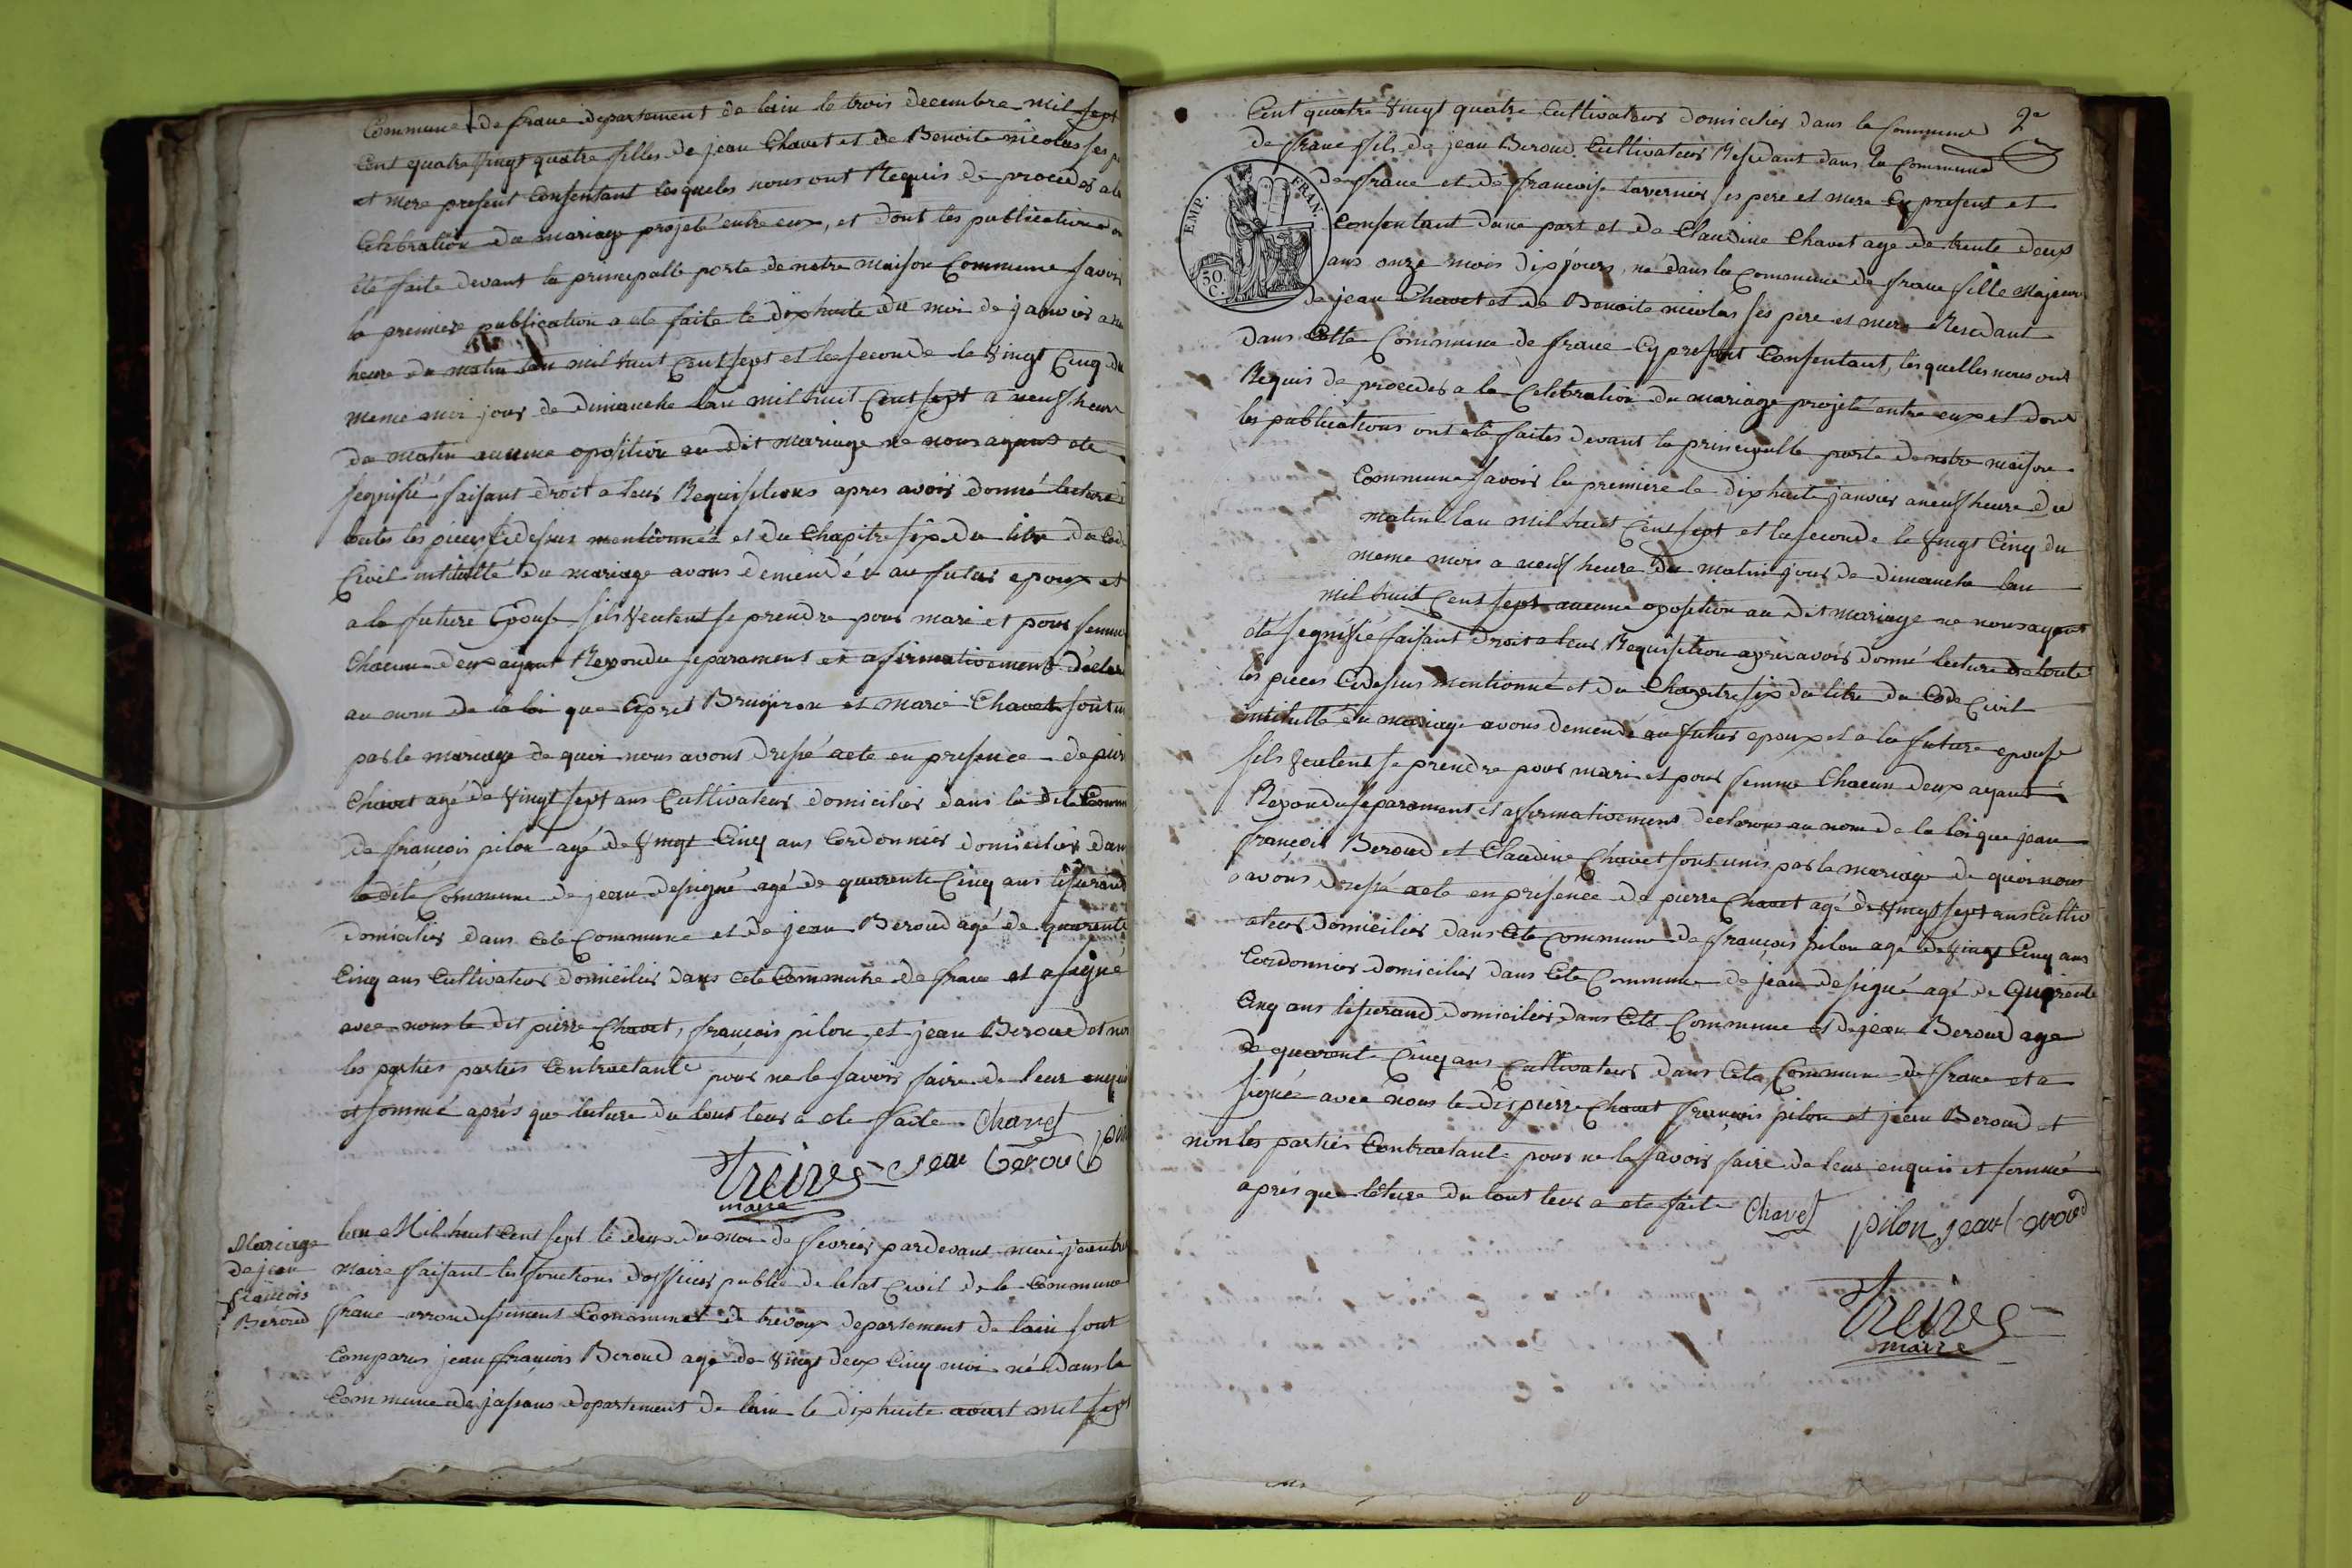 Commune de frane departement de lain le trois decembre mil sept
Cent quatre vingt quatre filles de jean Chavet et de Benoite nicolas ses
et mere present Consentant lesqueles nous ont Requis de proceder a la
Celebration du mariage projeté entre eux, et dont les publications
été faite devant la principalle porte de notre maison Commune savoir
la premiere publication a eté faite le dixhuite du moi de janvier a
heure du matin lan mil huit Cent sept et la seconde le vingt Cinq du
meme moi jour de dimanche lan mil huit Cent sept a neuf heure
du matin aucune oposition au dit mariage ne nous ayant ete
segnifié faisant droit a leur Requisitions apres avoir donné lecture
toutes les pieces Cidessus mentionneé et du Chapitre six du litre du Code
Civil intitullé du mariage avons demendé au futur epoux et
a la future Epouse sils veulent se prendre pour mari et pour femme
Chacun deux ayant Repondu separament et afirmativement
au nom de la loi que Bruyeron et marie Chavet sont
par le mariage de quoi nous avons dressé acte en presence de
Chavet agé de vingt sept ans Cultivateur domicilier dans la dite
de françois pilon agé de vingt Cinq ans Cordonnier domicilier dans
la dite Commune de jean designé agé de quarente Cinq ans tisserand
domicilier dans cete Commune et de jean Beroud agé de quarente
Cinq ans Cultivateur domicilier dans cete Commune de frane et a signé
avec nous le dit pierre Chavet, françois pilon, et jean Beroud et non
les parties parties Contractante pour ne le savoir faire de leur enquis
et sommé aprés que lecture du tout leur a ete faite Chavet
jean Beroud
Treive
maire
Mariage
de jean
françois
Beroud
lan Mil huit Cent sept le deux du moi de fevrier pardevant moi
maire faisant les fonctions dofficier public de letat Civil de la Commune
frane arrondissement Communal de trevoux departement de lain sont
Comparus jean françois Beroud agé de vingt deux Cinq moi né dans la
Commune de jassans departement de lain le dixhuite aoust mil sept
2e
Cent quatre vingt quatre Cultivateur domicilier dans la Commune
de frane fils de jean Beroud Cultivateur Residant dans la Commune
de frane et de francoise tavernier ses pere et mere Cy present et
EMP. FRAN.
50 C.
Consentant dune part et de Claudine Chavet age de trente deux
ans onze mois dix jours, né dans la Commune de frane fille Majeure
de jean Chavet et de Benoite nicolas ses pere et mere Residant
dans Cette Commune de frane Cy present Consentant, lesquelles nous ont
Requis de proceder a la Celebration du mariage projeté entre eux et dont
les publications ont eté faites devant la principalle porte de notre maison
Commune savoir la premiere le dixhuite janvier a neuf heure du
matin lan mil huit Cent sept et la seconde le vingt Cinq du
meme mois a neuf heure du matin jour de dimanche lan
mil huit Cent sept aucune oposition au dit mariage ne nous ayant
été segnifié faisant droit a leur Requisition aprés avoir donné lecture de toute
les pieces Cidessus mentionné et du Chapitre six du litre du Code Civil
intitullé du mariage avons demendé au futur epoux et a la future epouse
sils veulent se prendre pour mari et pour femme Chacun deux ayant
Repondu separament et affirmativement declarons au nom de la loi que jean
françois Beroud et Claudine Chavet sont unis par le mariage de quoi nous
avons dressé acte en présence de pierre Chavet agé de vingt sept ans Cultiv
ateur domicilier dans Cete Commune de françois pilon agé de vingt Cinq ans
Cordonnier domicilier dans Cete Commune de jean designé agé de quarente
Cinq ans tisserand domicilier dans Cete Commune et de jean Beroud age
de quarente Cinq ans Cultivateur dans Cete Commune de frane et a
signé avec nous le dit pierre Chavet françois pilon et jean Beroud et
non les parties Contractante pour ne le savoir faire de leur enquis et sommé
aprés que lecture du tout leur a ete faite Chavet
pilon jean Beroud
Treive
maire